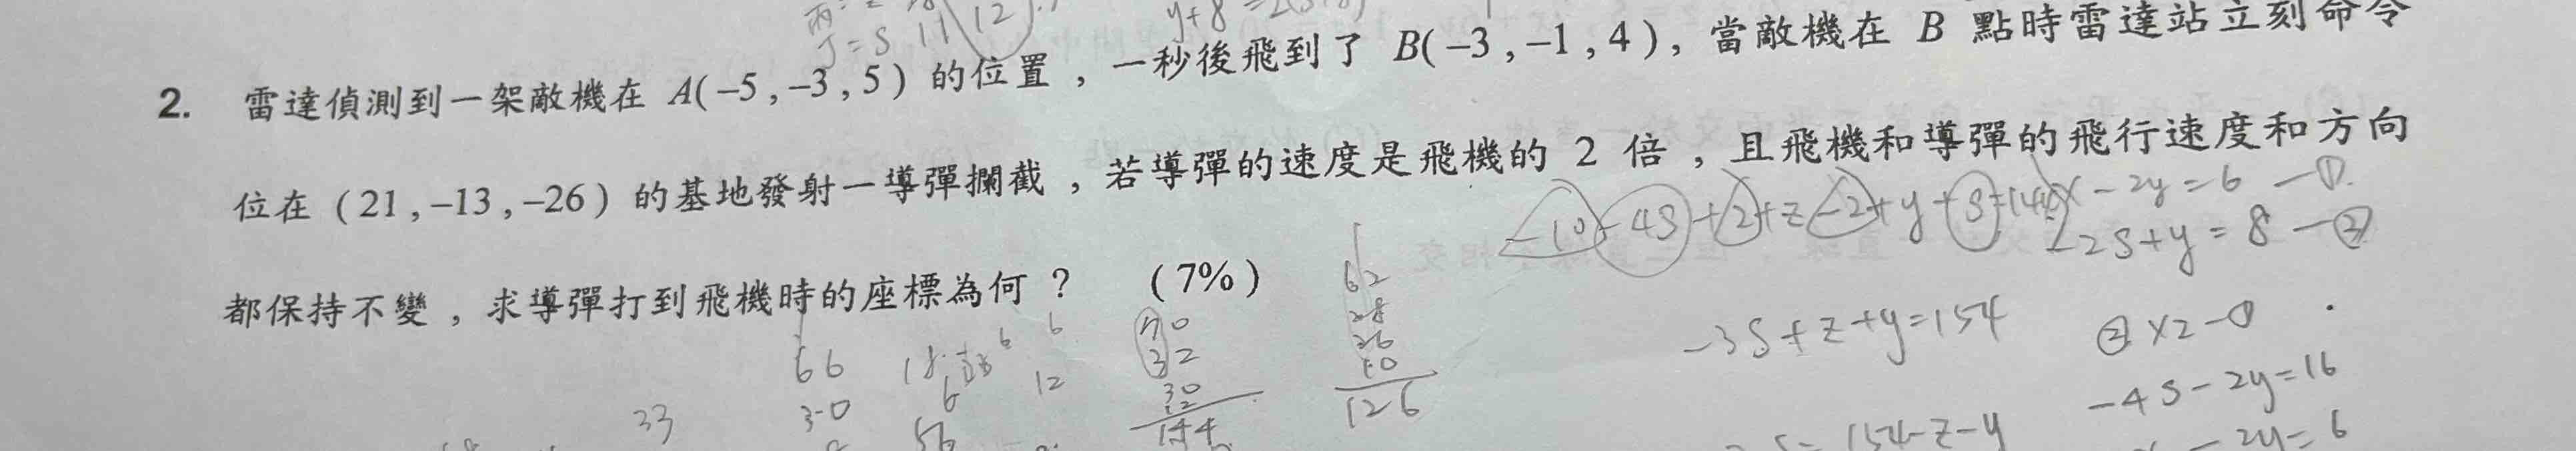 y+8
2. 雷達偵測到一架敵機在 A(–5 , –3 , 5) 的位置，一秒後飛到了 B(–3 , –1 , 4)，當敵機在 B 點時雷達站立刻命令
位在 (21 , –13 , –26) 的基地發射一導彈攔截，若導彈的速度是飛機的 2 倍，且飛機和導彈的飛行速度和方向
都保持不變，求導彈打到飛機時的座標為何？ (7%)
x-2y=6 -①
-2s+y=8-②
-3s+z+y=154
②x2-①
-4s-2y=16
-2y=6
154-z-y
62
28
26
10
126
70
32
30
12
144
66
30
33
6
6
12
6
56